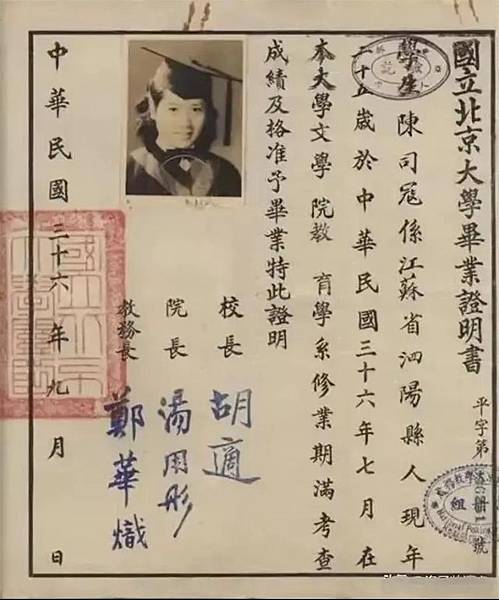 國立北京大學畢業證明書
平字第 號
學生陳司寇係江蘇省泗陽縣人現年
二十五歲於中華民國三十六年七月在
本大學文學院教育學系修業期滿考查
成績及格准予畢業特此證明
校長 胡適
院長 湯用彤
教務長 鄭華熾
中華民國三十六年九月 日
組
National Peking